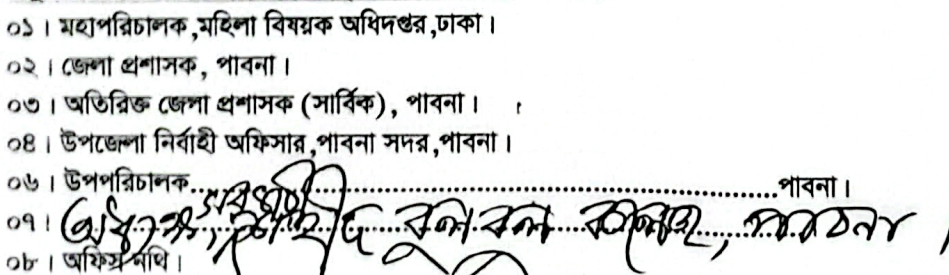 ০১। মহাপরিচালক,মহিলা বিষয়ক অধিদপ্তর,ঢাকা।
০২। জেলা প্রশাসক, পাবনা।
০৩। অতিরিক্ত জেলা প্রশাসক (সার্বিক), পাবনা।
০৪। উপজেলা নির্বাহী অফিসার,পাবনা সদর,পাবনা।
০৬। উপপরিচালক..............................................................পাবনা।
০৭। অধ্যক্ষ, শহীদ বুলবুল কলেজ, পাবনা।
০৮। অফিস নথি।